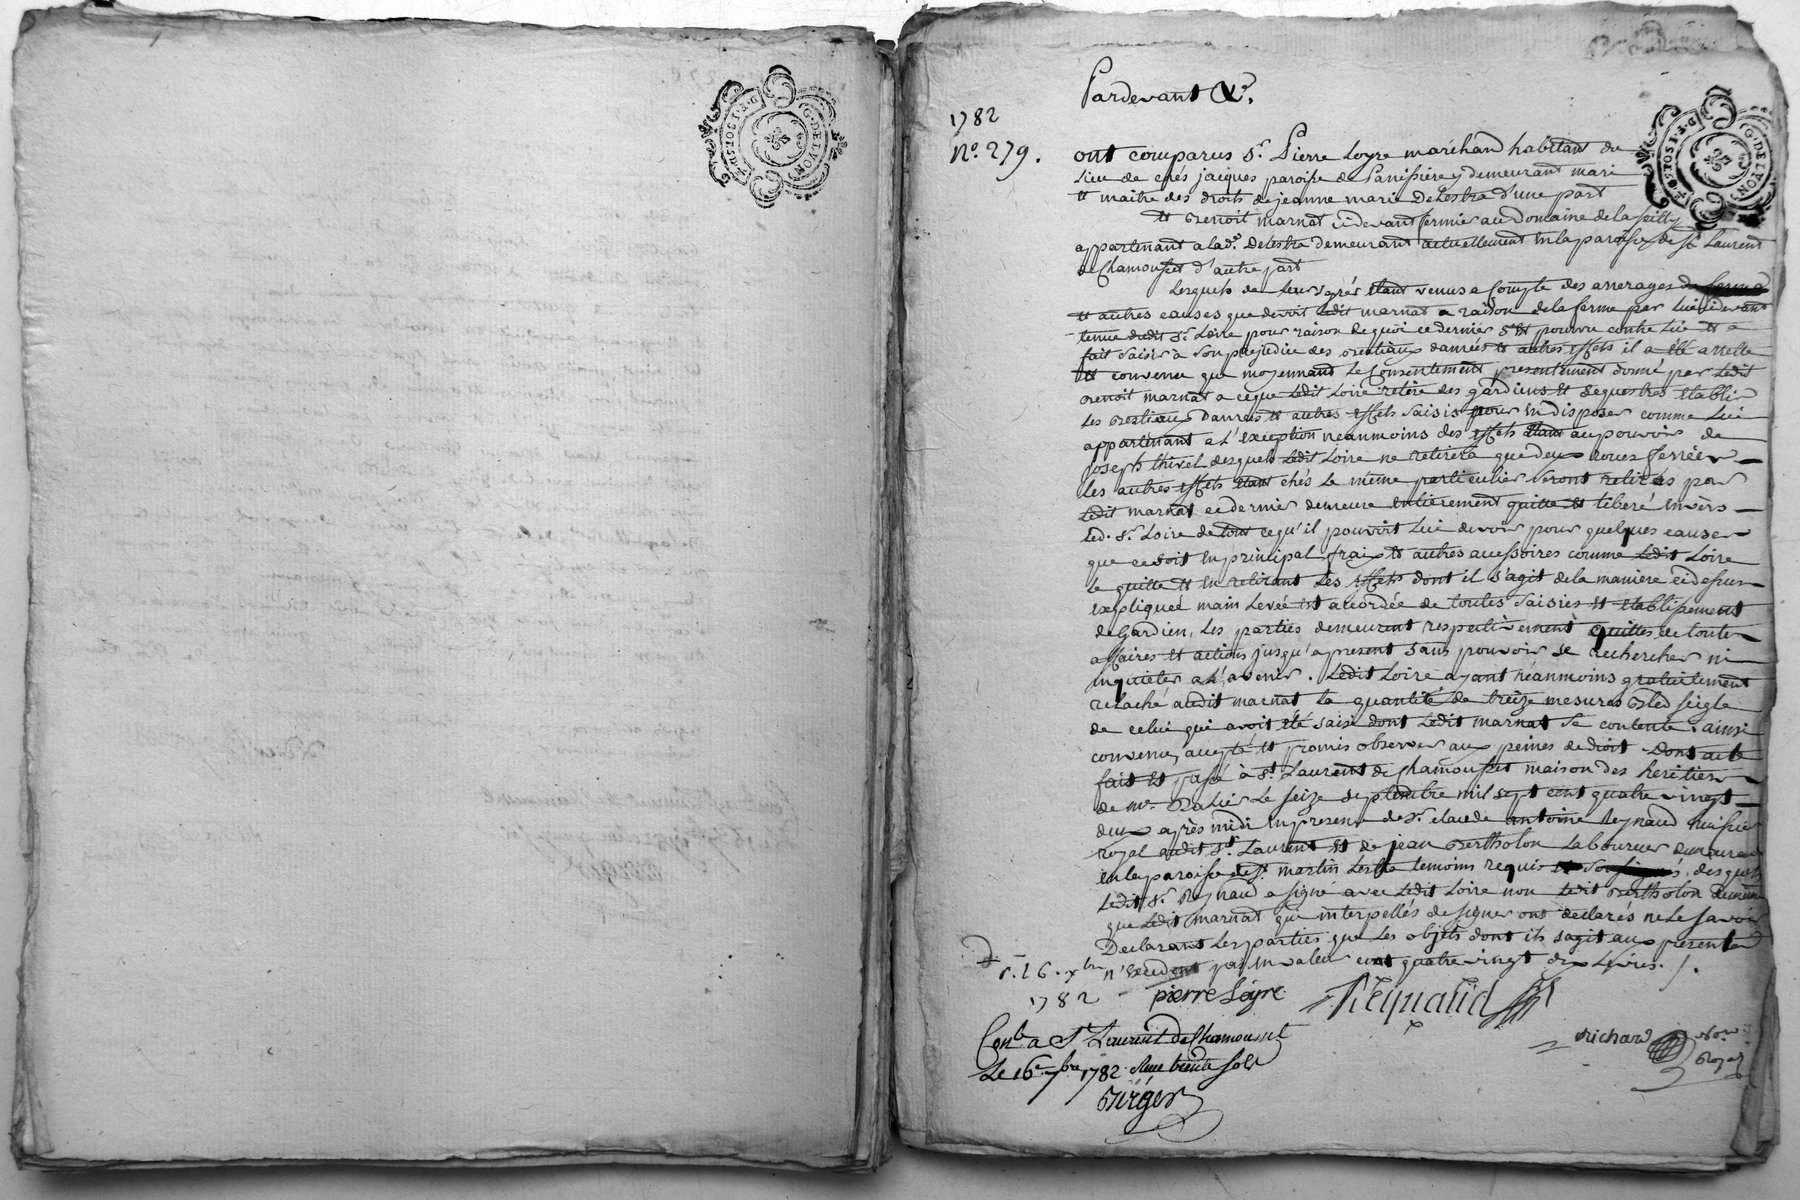 G. DE LYON
Pardevant &c.
1782
N.º 279.
ont comparus S.r Pierre Loyre marchand habitant du
lieu de chés jacques paroisse de Panissieres y demeurant mari
et maitre des droits de jeanne marie Delestra d'une part
Et Benoit marnat ci devant fermier au Domaine de la
appartenant a lad.e Delestra demeurant actuellement en la paroisse de S.t Laurent
de Chamousset d'autre part
Lesquels de leurs grés étant venus a Compte des arrerages de ferme
et autres causes que devoit ledit marnat a raison de la ferme par lui ci devant
tenue dudit S.r Loire pour raison de quoi ce dernier s'est pourvu contre lui et a
fait saisir à son prejudice des bestiaux danrées et autres effets il a été arreté
et convenu que moyennant le Consentement presentement donné par ledit
Benoit marnat a ce que ledit Loire retire des gardiens et sequestres etablis
les bestiaux danrées et autres effets saisis pour en disposer comme lui
appartenant a l'exception neanmoins des effets étant au pouvoir de
joseph thivel desquels ledit Loire ne retirera que deux roues ferrées
les autres effets étant chés le même particulier seront retirés par
ledit marnat ce dernier demeure entierement quitte et liberé envers
led. S.r Loire de tout ce qu'il pouvoit lui devoir pour quelques causes
que ce soit en principal fraix et autres accessoires comme ledit Loire
le quitte et en retirant les effets dont il s'agit de la maniere ci dessus
expliquée main levée est accordée de toutes saisies et etablissement
de Gardien, les parties demeurent respectivement quittes de toutes
affaires et actions jusqu'a present sans pouvoir se rechercher ni
inquieter a l'avenir. Ledit Loire ayant néanmoins gratuitement
relaché audit marnat la quantité de treize mesures bled seigle
de celui qui avoit été saisi dont ledit marnat se contente. ainsi
convenu, accepté et promis observer aux peines de droit. Dont acte
fait et passé à S.t Laurent de Chamousset maison des heritiers
de m.e le seize septembre mil sept cent quatre vingt
deux après midi en presence de S.r claude antoine Reynaud huissier
royal audit S.t Laurent et de jean Bertholon Laboureur demeurant
en la paroisse de S.t martin Lestra temoins requis desquels
ledit S.r Reynaud a signé avec ledit Loire non ledit Bertholon de même
que ledit marnat qui interpellés de signer ont declarés ne le savoir
Declarant les parties que les objets dont ils sagit aux presentes
n'excedent pas en valeur cent quatre vingt dix Livres. /.
16. xbre
1782
pierre Loyre
Reynaud
Richard
not.re
Royal
Con.lé a S.t Laurent de Chamousset
Le 16.e 7bre 1782. Reçu trente sols
Birger